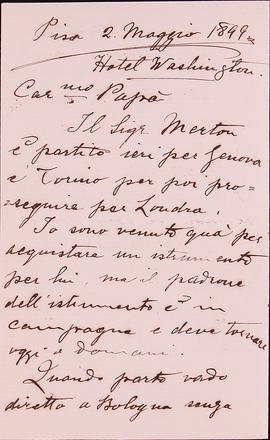 Pisa 2. Maggio 1899
Hotel Washington.
Car.mo Papà
Il Sigr Merton
è partito ieri per Genova
e Torino per poi pro=
=seguire per Londra.
Io sono venuto quà per
acquistare un istrumento
per lui, ma il padrone
dell'istrumento è in
campagna e deve tornare
oggi o domani.
Quando parto vado
diretto a Bologna senza